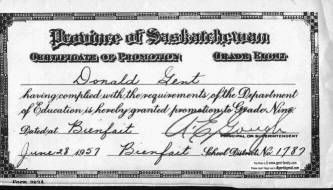 Province of Saskatchewan
CERTIFICATE OF PROMOTION GRADE EIGHT
Donald Gent
having complied with the requirements of the Department
of Education is hereby granted promotion to Grade Nine
Dated at Bienfait
PRINCIPAL OR SUPERINTENDENT
June 28 1957 Bienfait School District No. 1787